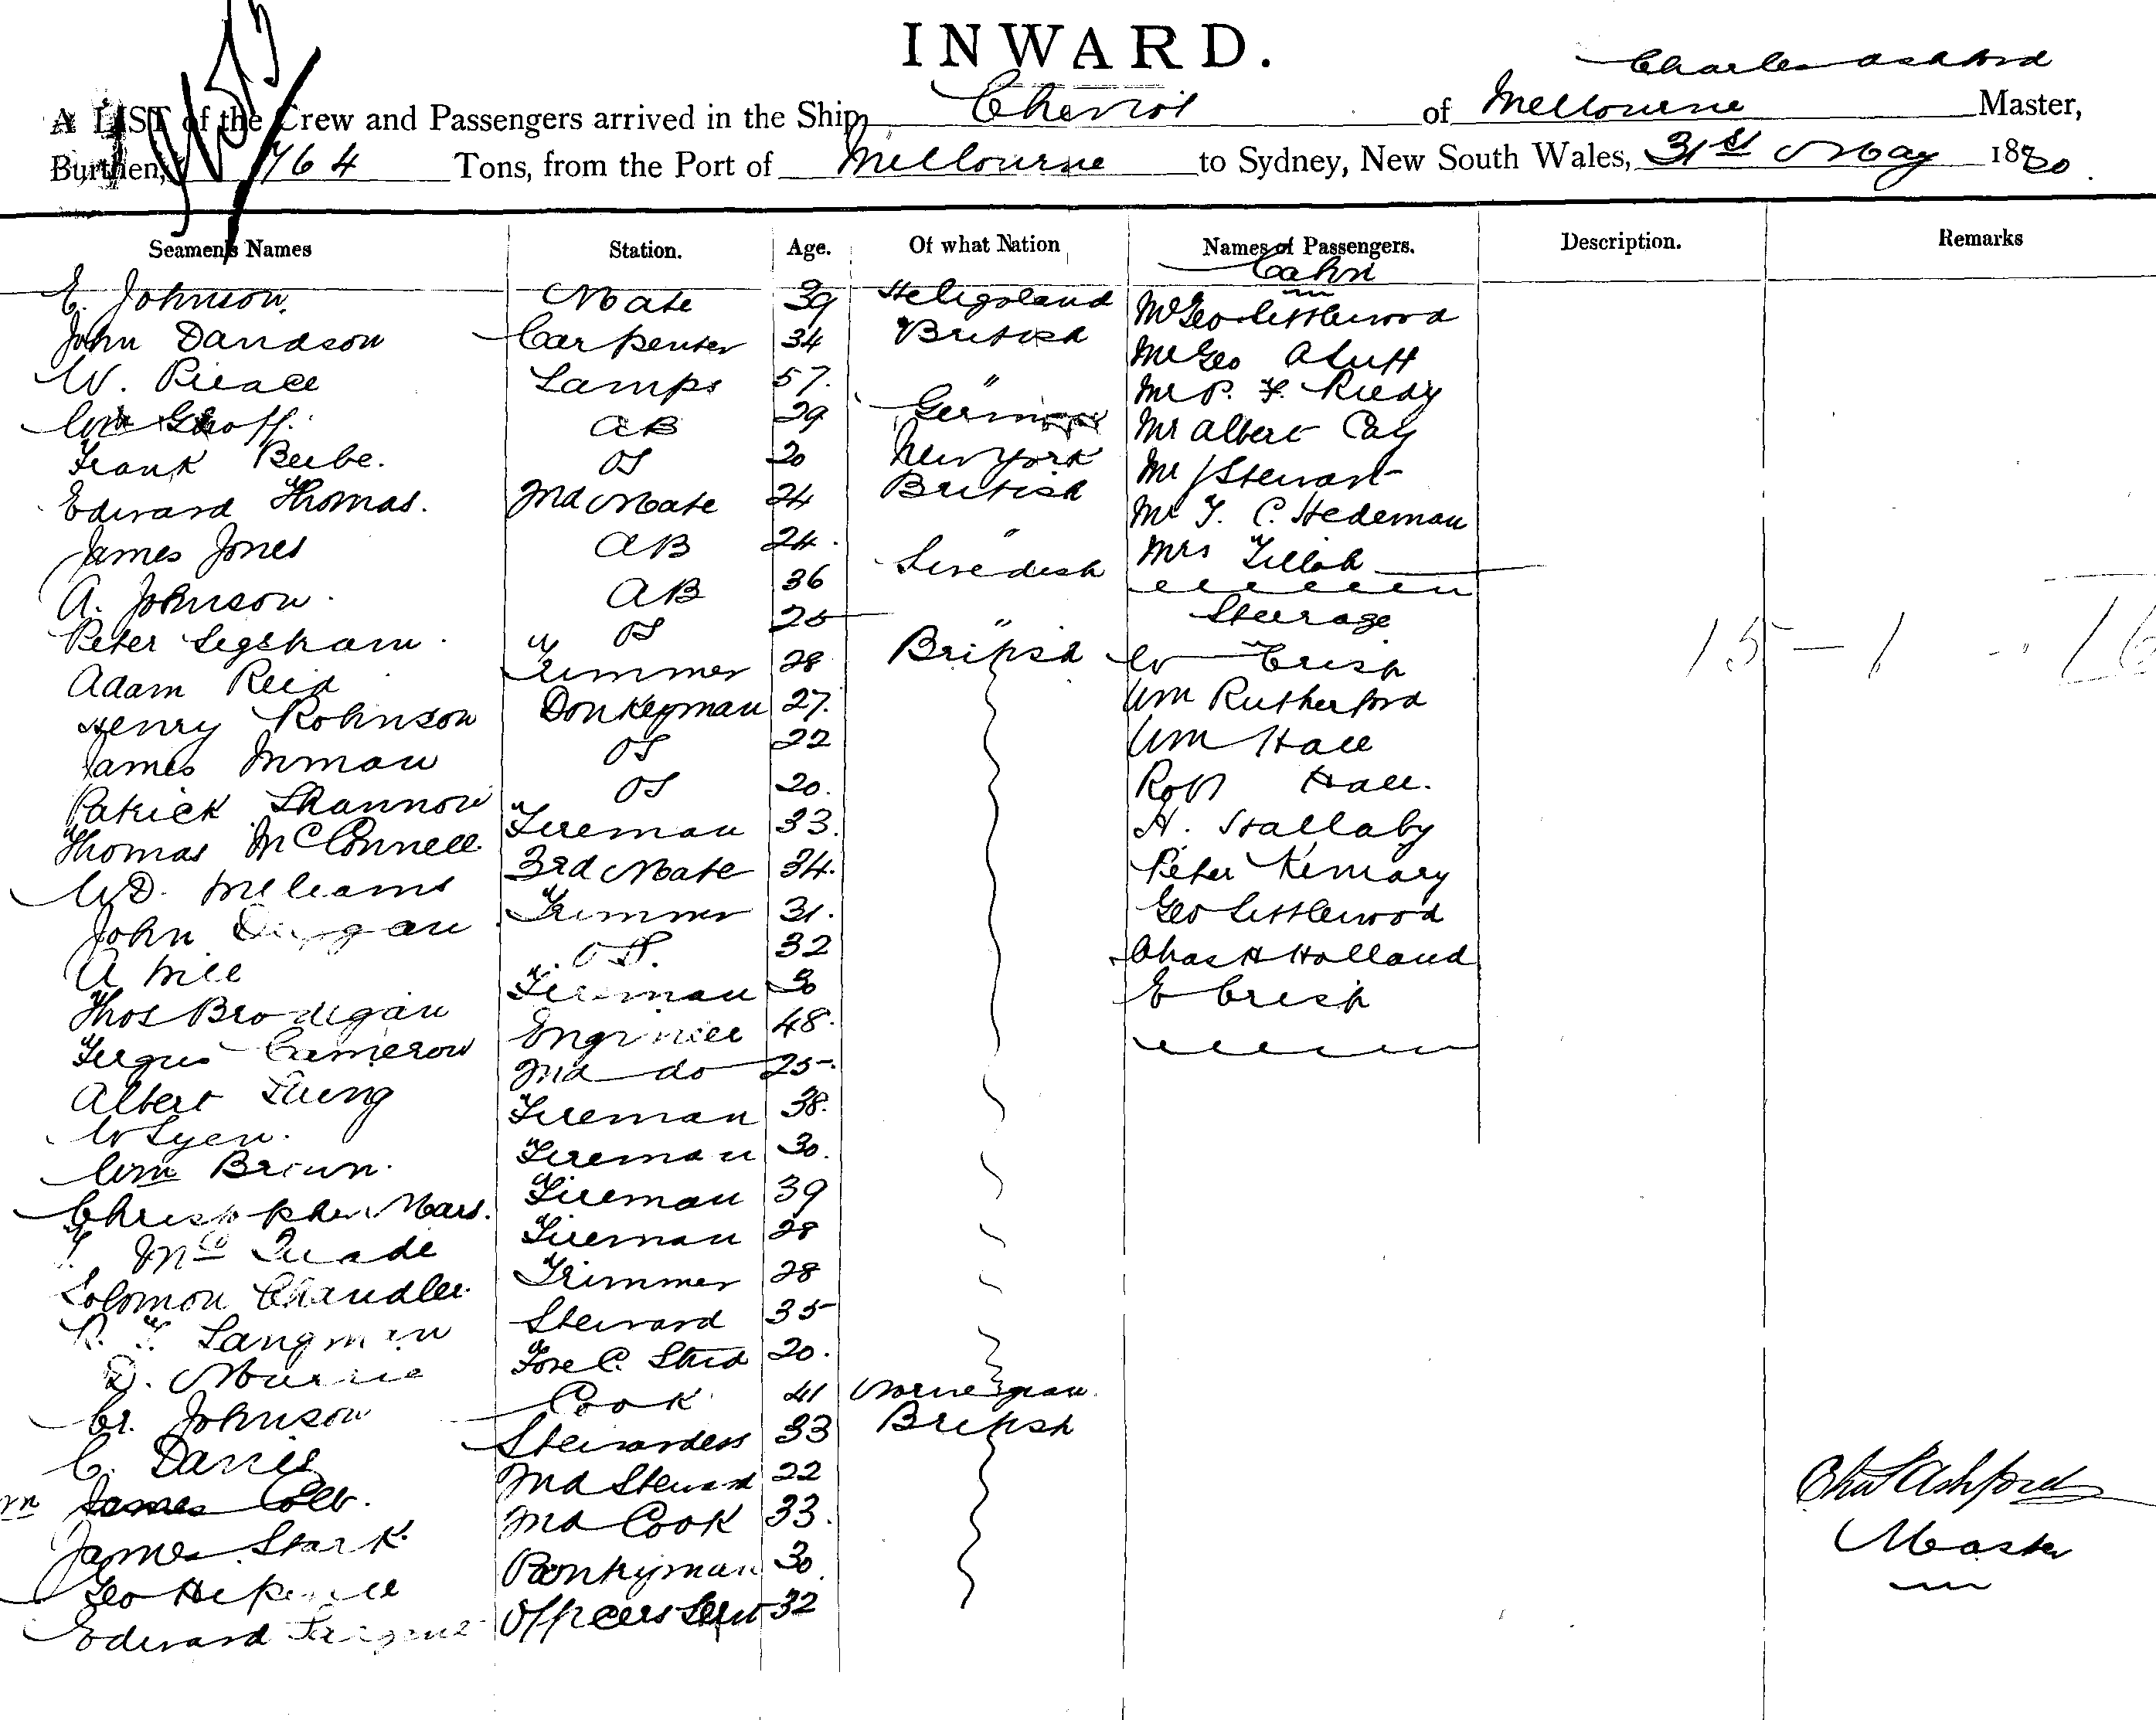 INWARD.
Charles Ashford
A LIST of the Crew and Passengers arrived in the Ship Cheviot of Melbourne Master,
Burthen, 764 Tons, from the Port of Melbourne to Sydney, New South Wales, 31st May 1880.
Seamen's Names Station. Age. Of what Nation Names of Passengers. Description. Remarks
Cabin
E. Johnson. Mate 39 Heligoland Mr Geo Littlewood
John Davidson Carpenter 34 British Mr Geo
W. Pierce Lamps 57. " Mr P. F. Reedy
Wm 29 AB German Mr Albert Cay
Frank Beebe. OS 20 New York Mr J Stewart
Edward Thomas. 2nd Mate 24 British Mr T. C. Hedeman
James Jones AB 24. " Mrs
A. Johnson. AB 36 Swedish
Peter OS 25 " Steerage
Adam Reid Trimmer 28 British W Crisp
15 - 1 .. 16
Henry Robinson Donkeyman 27. Wm Rutherford
James Inman OS 22 Wm Hall
Patrick Shannon OS 20. Robt Hall.
Thomas McConnell Fireman 33. H.
W.D. Williams 3rd Mate 34. Peter
John Trimmer 31. Geo Littlewood
A OS. 32 Chas H Holland
Thos Brodigan Fireman 30 E Crisp
Fergus Cameron Engineer 48.
Albert Laing 2nd do 25.
W Lyen. Fireman 38.
Wm Brown. Fireman 30.
Christopher Mars. Fireman 39
T. McQuade Fireman 28
Solomon Chandler Trimmer 28
R. T. Langman Steward 35
D. Fore C. Stwd 20.
Cr. Johnson Cook 41 Norwegian.
C. Davies Stewardess 33 British
James 2nd Steward 22
James Stark. 2nd Cook 33.
Geo Donkeyman 30.
Edward Officers Servt 32
Chas Ashford
Master